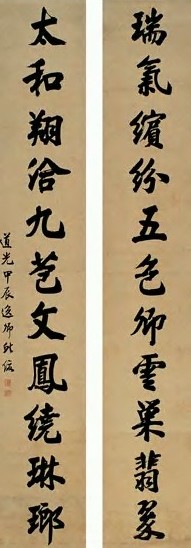 瑞氣繽紛五色卿雲巢翡翠
太和翔洽九苞文鳳繞琳瑯
道光甲辰逸卿